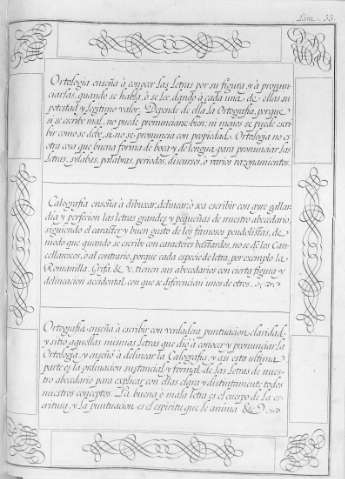 Lam. 33.
Ortologia enseña à conocer las Letras por su figura, y à pronun-
ciarlas, quando se habla, ò se lee, dando à cada una de ellas su
potestad y legitimo valor. Depende de ella la Ortografia, porque
si se escribe mal, no puede pronunciarse bien; ni menos se puede escri-
bir como se debe, si no se pronuncia con propiedad. Ortologia no es
otra cosa que buena forma de boca y de lengua, para pronunciar las
letras, silabas, palabras, periodos, discursos, ò varios razonamientos.
Caligrafia enseña à dibuxar, delinear, ò sea escribir con ayre, gallar-
dia y perfeccion las letras grandes y pequeñas de nuestro abecedario,
siguiendo el caracter y buen gusto de los famosos pendolistas, de
modo que quando se escribe con caracteres bastardos, no se dè los Can-
cellarescos, ò al contrario, porque cada especie de letra, por exemplo la
Romanilla, Grifa & v. tienen sus abecedarios con cierta figura y
delineacion accidental, con que se diferencian unos de otros.
Ortografia enseña à escribir con verdadera puntuacion, claridad,
y sitio aquellas mismas letras que diò à conocer y pronunciar la
Ortologia, y enseñó à delinear la Caligrafia, y asi esta ultima
parte es la pintura substancial y formal de las Letras de nues-
tro abecedario para explicar con ellas clara y distintamente todos
nuestros conceptos. La buena ò mala letra es el cuerpo de la es-
critura, y la puntuacion es el espiritu que le anima &c.